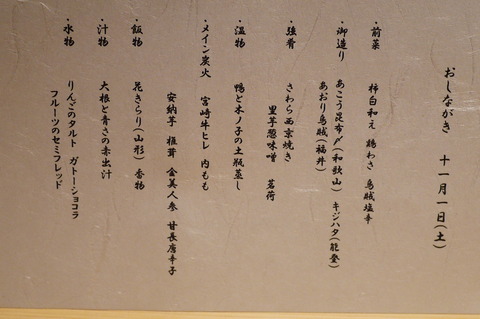 おしながき 十一月一日(土)
・前菜 柿白和え 鶏わさ 烏賊塩辛
・御造り あこう昆布〆(和歌山) キジハタ(能登)
あおり烏賊(福井)
・強肴 さわら西京焼き
里芋葱味噌 茗荷
・温物 鴨と木ノ子の土瓶蒸し
・メイン炭火 宮崎牛ヒレ 内もも
安納芋 椎茸 金美人参 甘長唐辛子
・飯物 花きらり(山形) 香物
・汁物 大根と青さの赤出汁
・水物 りんごのタルト ガトーショコラ
フルーツのセミフレッド